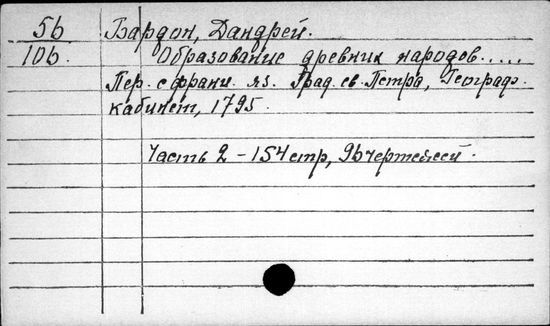 5б Бардон, Дандрей.
10б. Образование древних народов.....
Пер. с франц. яз. Град. св. Петра, Географ.
кабинет, 1795.
Часть 2 - 154 стр, 96 чертежей.